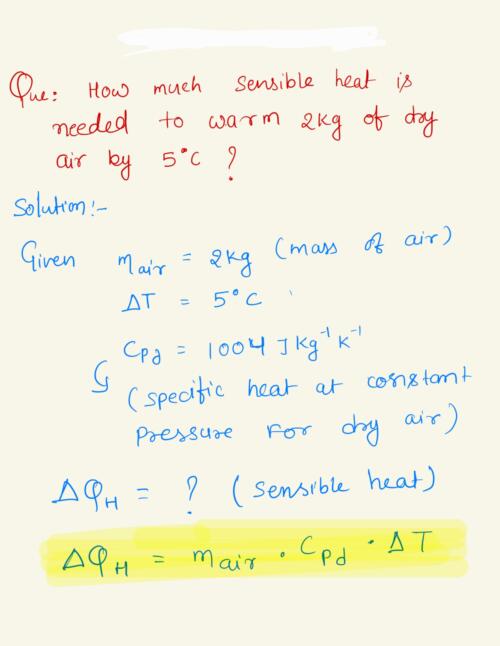 Que: How much sensible heat is
needed to warm 2kg of dry
air by 5°C ?
Solution:-
Given m_air = 2kg (mass of air)
ΔT = 5°C
C_Pd = 1004 J kg⁻¹ K⁻¹
(specific heat at constant
pressure for dry air)
ΔQ_H = ? (sensible heat)
ΔQ_H = m_air · C_Pd · ΔT